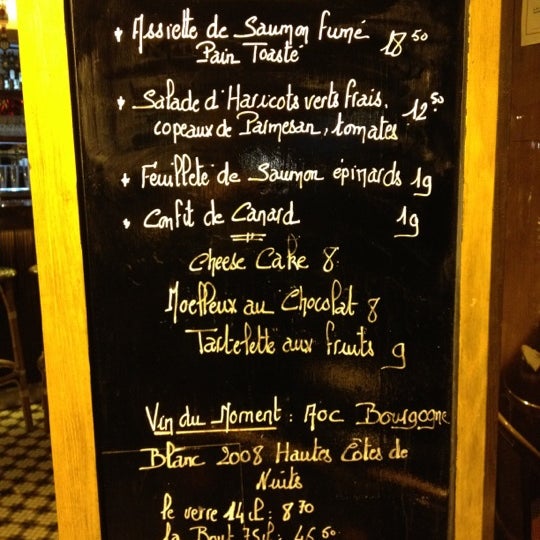 Assiette de Saumon fumé
Pain Toasté 18 50
Salade d'Haricots verts frais,
copeaux de Parmesan, tomates 12 50
Feuilleté de Saumon épinards 19
Confit de Canard 19
Cheese Cake 8
Moelleux au Chocolat 8
Tartelette aux fruits 9
Vin du Moment : AOC Bourgogne
Blanc 2008 Hautes Côtes de
Nuits
le verre 14 cl : 8 70
la Bout 75 cl : 45 50